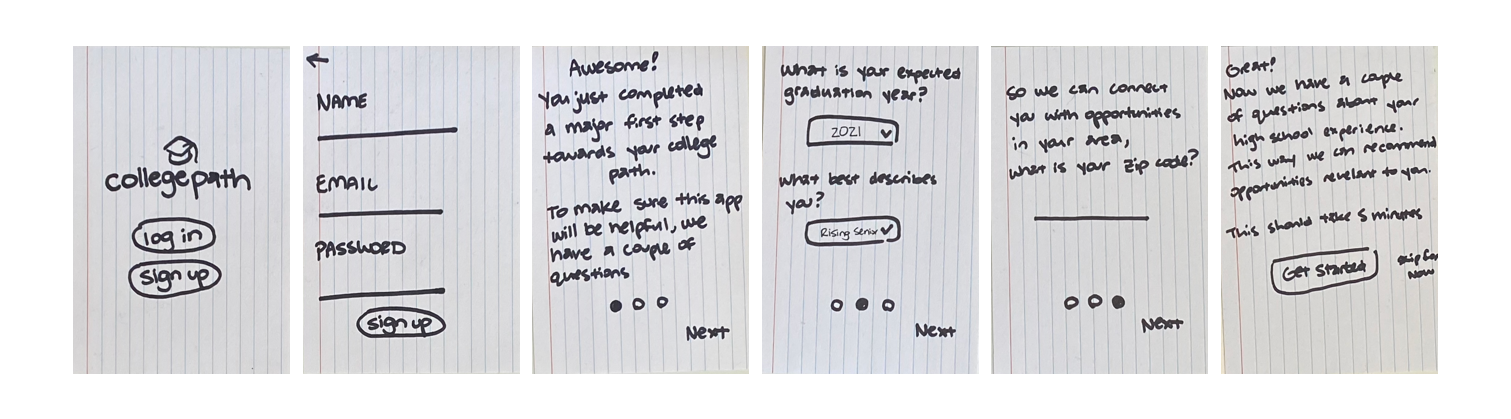 collegepath
log in
sign up
NAME
EMAIL
PASSWORD
sign up
Awesome!
You just completed
a major first step
towards your college
path.
To make sure this app
will be helpful, we
have a couple of
questions
Next
What is your expected
graduation year?
2021
What best describes
you?
Rising Senior
Next
So we can connect
you with opportunities
in your area,
what is your zip code?
Next
Great!
Now we have a couple
of questions about your
high school experience.
This way we can recommend
opportunities revelant to you.
This should take 5 minutes
Get Started
skip for
Now